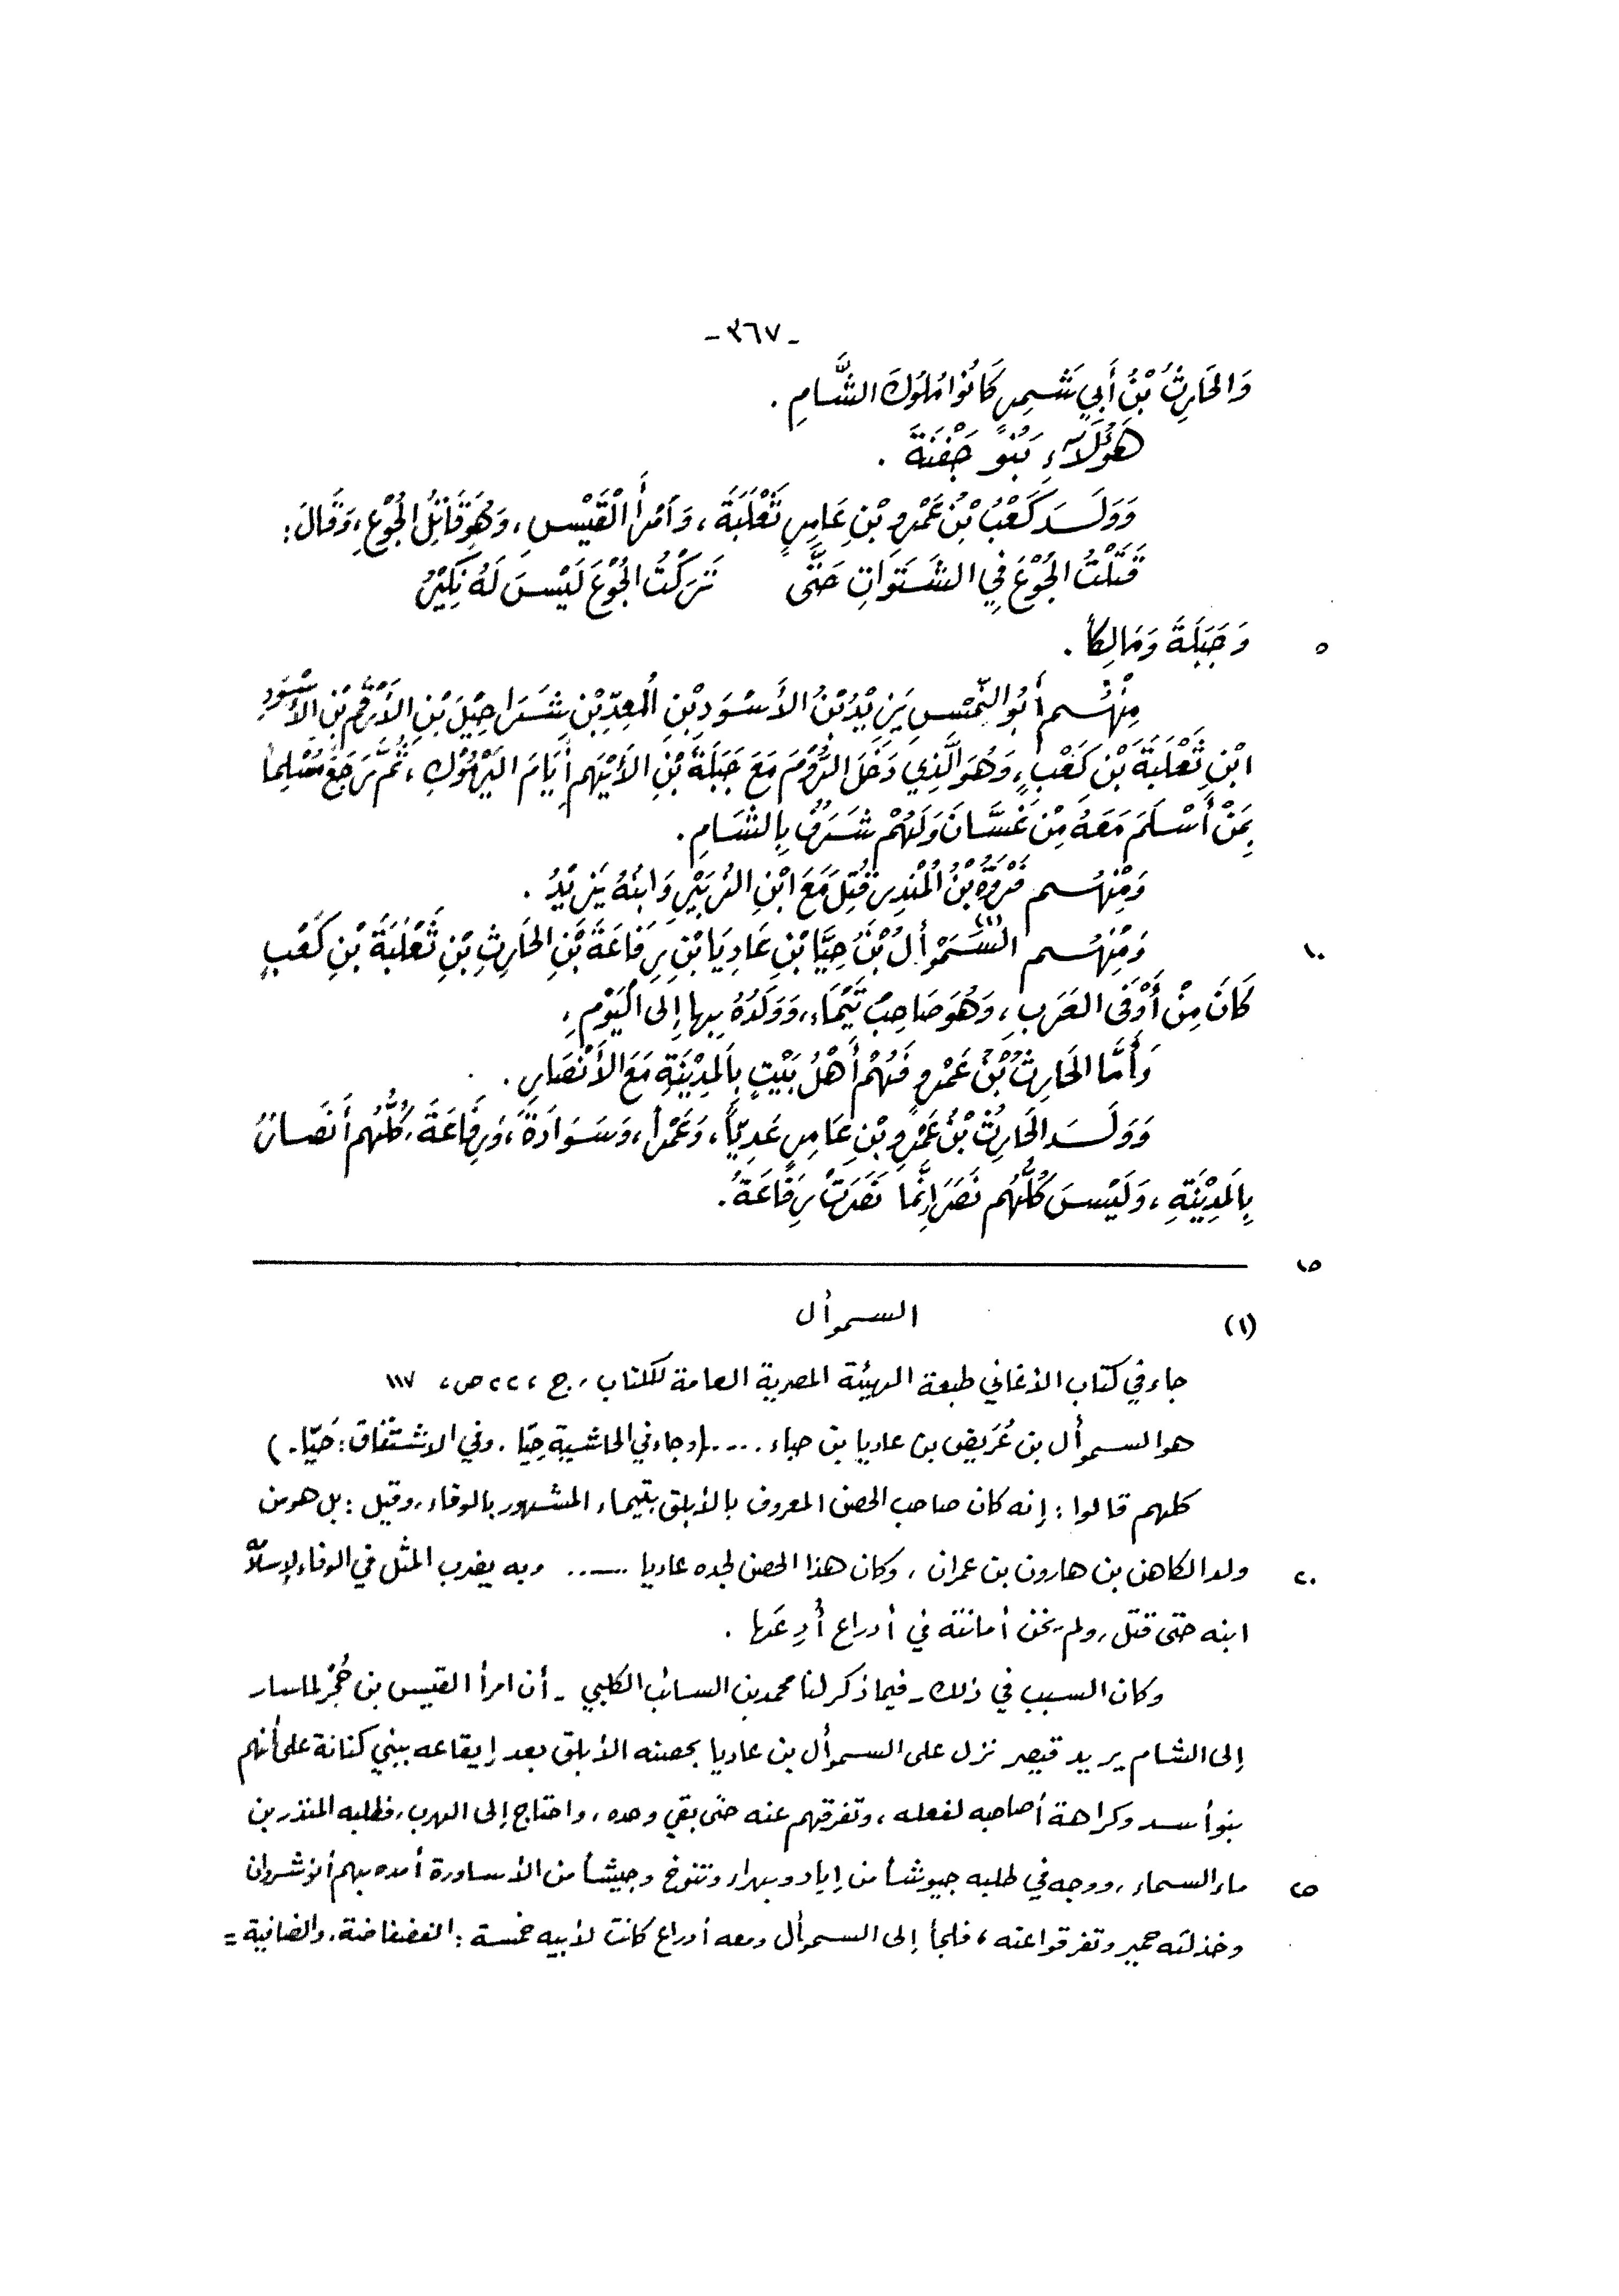 -٣٦٧-
وَالحَارِثُ بْنُ أَبِي شَمِرٍ كَانُوا مُلُوكَ الشَّامِ .
هَؤُلَاءِ بَنُو جَفْنَةَ .
وَوَلَـدَ كَعْبُ بْنُ عَمْرِو بْنِ عَامِرٍ ثَعْلَبَةَ ، وَامْرَأَ الْقَيْسِ ، وَهُوَ قَاتِلُ الجُوْعِ ، وَقَالَ :
قَتَلْتُ الجُوْعَ فِي الشَتَوَاتِ حَتَّى تَرَكْتُ الجُوْعَ لَيْسَ لَهُ نَكِيْرُ
٥ وَجَبَلَةَ وَمَالِكاً .
مِنْهُـم أَبُو النِّمْسِ يَزِيْدُ بْنُ الأَسْوَدِ بْنِ المُعِدِّ بْنِ شَرَاحِيْلَ بْنِ الأَرْقَمِ بْنِ الأَسْوَدِ
ابْنِ ثَعْلَبَةَ بْنِ كَعْبٍ ، وَهُوَ الَّذِي دَخَلَ الرُّوْمَ مَعَ جَبَلَةَ بْنِ الأَيْهَمِ أَيَّامَ اليَرْمُوْكِ ، ثُمَّ رَجَعَ مُسْلِماً
بِمَنْ أَسْلَمَ مَعَهُ مِنْ غَسَّانَ وَلَهُمْ شَرَفٌ بِالشَّامِ .
وَمِنْهُـم فَرْوَةُ بْنُ المُنْذِرِ قُتِلَ مَعَ ابْنِ الزُبَيْرِ وَابْنُهُ يَزِيْدُ .
١٠ وَمِنْهُـم السَّمَوْأَلُ(١) بْنُ حِيَّا بْنِ عَادِيَا بْنِ رِفَاعَةَ بْنِ الحَارِثِ بْنِ ثَعْلَبَةَ بْنِ كَعْبٍ
كَانَ مِنْ أَوْفَى العَرَبِ ، وَهُوَ صَاحِبُ تَيْمَاءَ ، وَوَلَدُهُ بِهَا إِلى اليَوْمِ .
وَأَمَّا الحَارِثُ بْنُ عَمْرٍو فَهُمْ أَهْلُ بَيْتٍ بِالمَدِيْنَةِ مَعَ الأَنْصَارِ .
وَوَلَـدَ الحَارِثُ بْنُ عَمْرِو بْنِ عَامِرٍ عَدِيّاً ، وَعَمْراً ، وَسَوَادَةَ ، وَرِفَاعَةَ ، كُلُّهُم أَنْصَارٌ
بِالمَدِيْنَةِ ، وَلَيْسَ كُلُّهُم نَصَرَ إِنَّمَا نَصَرَتْ رِفَاعَةُ .
١٥
(١) السموأل
جاء في كتاب الأغاني طبعة الهيئة المصرية العامة للكتاب ، ج ، ٢٢ ، ص ، ١١٧
هو السموأل بن عُرَيض بن عاديا بن حياء ..... (وجاء في الحاشية حِيّا . وفي الاشتقاق : حَيّا .)
كلهم قالوا : إنه كان صاحب الحصن المعروف بالأبلق بتيماء المشهور بالوفاء ، وقيل : بل هو من
٢٠ ولد الكاهن بن هارون بن عمران ، وكان هذا الحصن لجده عاديا ..... وبه يضرب المثل في الوفاء لإسلامه
ابنه حتى قتل ، ولم يخن أمانته في أدراع أُودِعَها .
وكان السبب في ذلك - فيما ذكر لنا محمد بن السائب الكلبي - أن امرأ القيس بن حُجْر لما سار
إلى الشام يريد قيصر نزل على السموأل بن عاديا بحصنه الأبلق بعد إيقاعه ببني كنانة على أنهم
بنو أسد وكراهة أصحابه لفعله ، وتفرقهم عنه حتى بقي وحده ، واحتاج إلى الهرب ، فطلبه المنذر بن
٢٥ ماء السماء ، ووجه في طلبه جيوشاً من إياد وبهراء وتنوخ وجيشاً من الأساورة أمده بهم أنوشروان
وخذلته حمير وتفرقوا عنه ، فلجأ إلى السموأل ومعه أدراع كانت لأبيه خمسة : الفضفاضة ، والضافية =